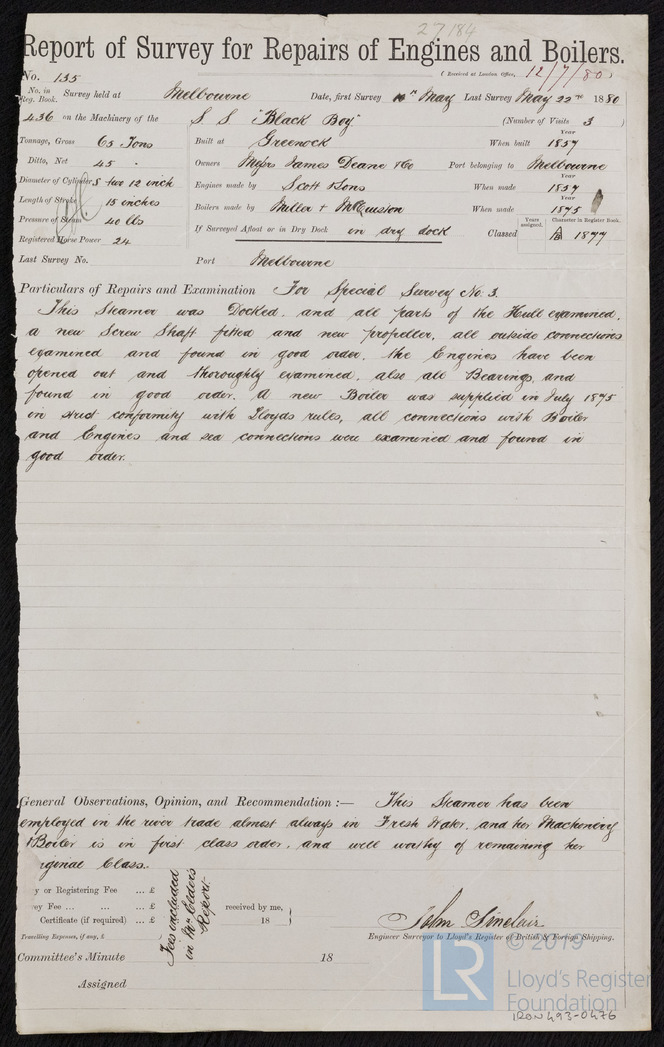 27184
Report of Survey for Repairs of Engines and Boilers.
No. 135 (Received at London Office, 12/7/80)
No. in Reg. Book. Survey held at Melbourne Date, first Survey May Last Survey May 22nd 1880
436 on the Machinery of the S S "Black Boy" (Number of Visits 3)
Tonnage, Gross 65 Tons Built at Greenock When built Year 1857
Ditto, Net 45 Owners Messrs James Deane & Co Port belonging to Melbourne
Diameter of Cylinders two 12 inch Engines made by Scott & Sons When made Year 1857
Length of Stroke 15 inches Boilers made by Miller & When made Year 1875
Pressure of Steam 40 lbs If Surveyed Afloat or in Dry Dock in dry dock Classed Years assigned. Character in Register Book. 1877
Registered Horse Power 24
Last Survey No. Port Melbourne
Particulars of Repairs and Examination For Special Survey No. 3.
This Steamer was Docked, and all parts of the Hull examined,
a new Screw Shaft fitted and new propeller, all outside connections
examined and found in good order. the Engines have been
opened out and thoroughly examined, also all Bearings, and
found in good order. A new Boiler was supplied in July 1875
in strict conformity with Lloyds rules, all connections with Boiler
and Engines and sea connections were examined and found in
good order.
General Observations, Opinion, and Recommendation :— This Steamer has been
employed in the river trade almost always in Fresh Water, and her Machinery
& Boiler is in first class order, and well worthy of remaining her
riginal Class.
y or Registering Fee ... £
vey Fee ... ... ... £ received by me,
Certificate (if required) ... £ 18
Fees included
in Mr Elders
Report.
Travelling Expenses, if any, £
John Sinclair
Engineer Surveyor to Lloyd's Register of British & Foreign Shipping.
Committee's Minute 18
Assigned
LR
© 2019
Lloyd's Register
Foundation
IRON493-0476